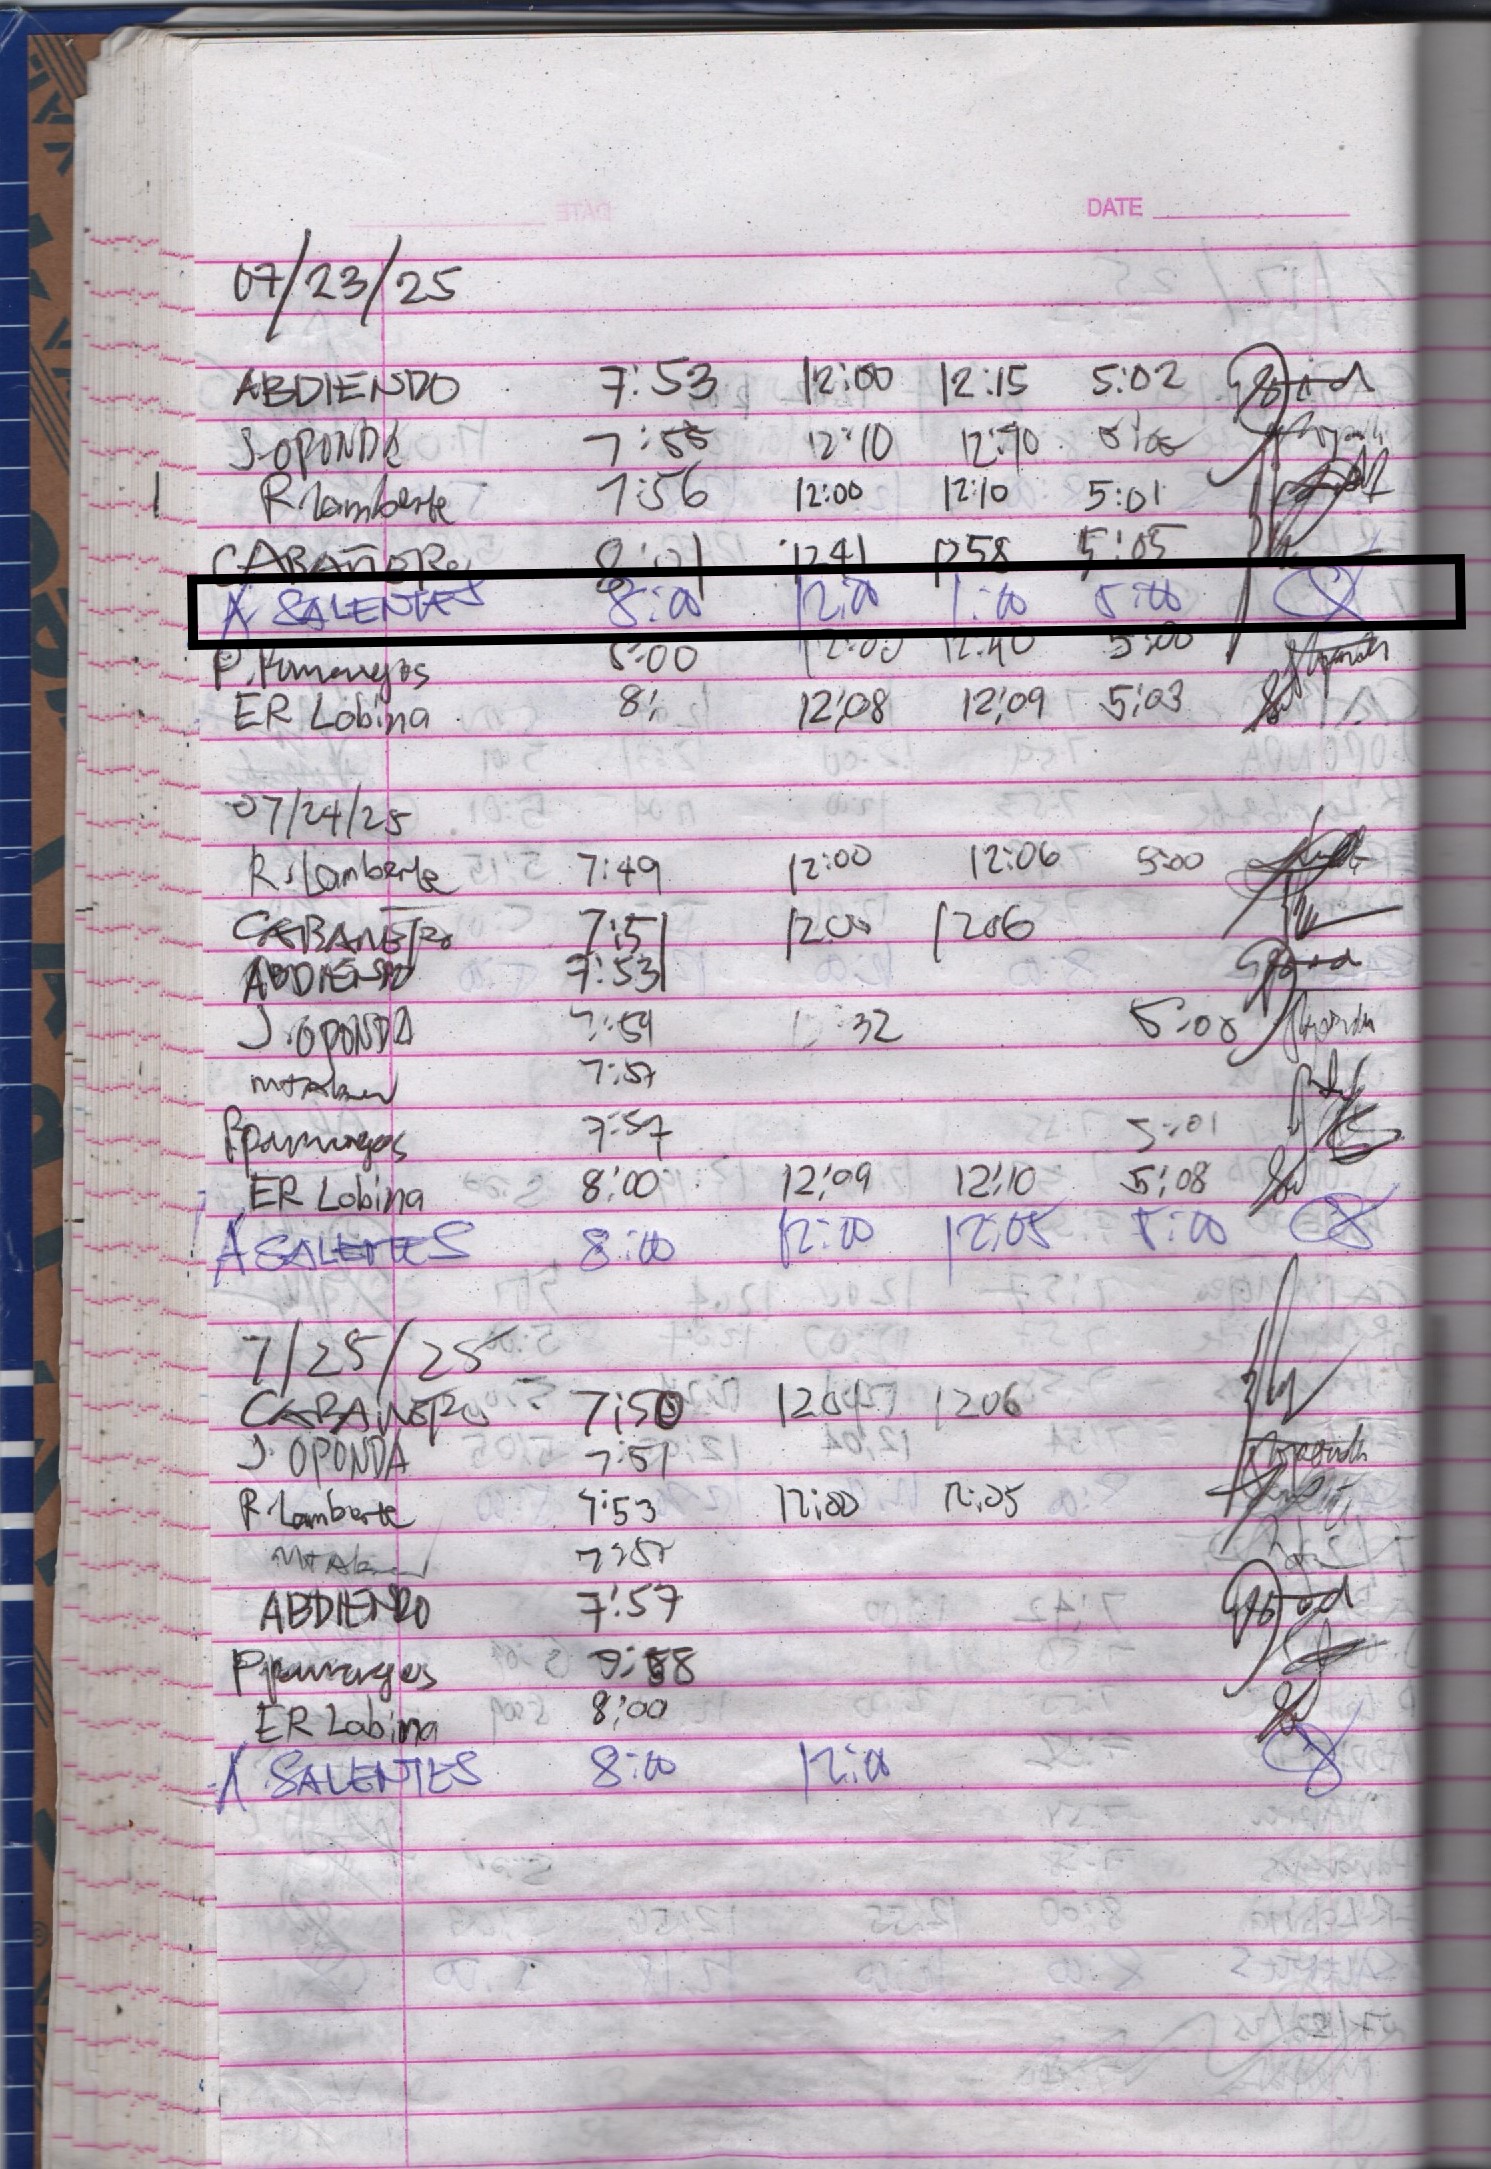 DATE
07/23/25
ABDIENDO 7:53 12:00 12:15 5:02
J. OPONDA 7:55 12:10 12:10
R. Lamberte 7:56 12:00 12:10 5:01
CABAÑERO 8:01 1241 1258 5:05
A SALENTES 8:00 12:00 1:00 5:00
P. Pamangos 8:00 12:00 12:40 5:00
ER Lobina 8: 12:08 12:09 5:03
07/24/25
R. Lamberte 7:49 12:00 12:06 5:00
CABAÑERO 7:51 1200 1206
ABDIENDO 7:53
J. OPONDA 7:59 :32 5:00
7:57
P pamangos 7:57 5:01
ER Lobina 8:00 12:09 12:10 5:08
A SALENTES 8:00 12:00 12:05 5:00
7/25/25
CABAÑERO 7:50 1204 1206
J. OPONDA 7:51
R Lamberte 7:53 12:00 12:05
7:57
ABDIENDO 7:57
P pamangos 7:58
ER Lobina 8:00
A SALENTES 8:00 12:00